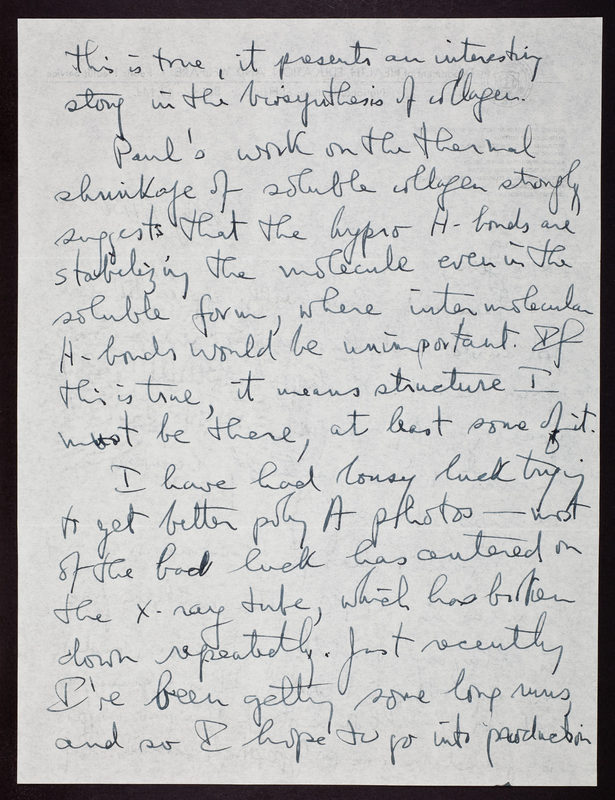 this is true, it presents an interesting
story in the biosynthesis of collagen.
Paul's work on the thermal
shrinkage of soluble collagen strongly
suggests that the hypro H-bonds are
stabilizing the molecule even in the
soluble form, where intermolecular
H-bonds would be unimportant. If
this is true, it means structure I
must be there, at least some of it.
I have had lousy luck trying
to get better poly A photos — most
of the bad luck has centered on
the x-ray tube, which has broken
down repeatedly. Just recently
I've been getting some long runs,
and so I hope to go into production